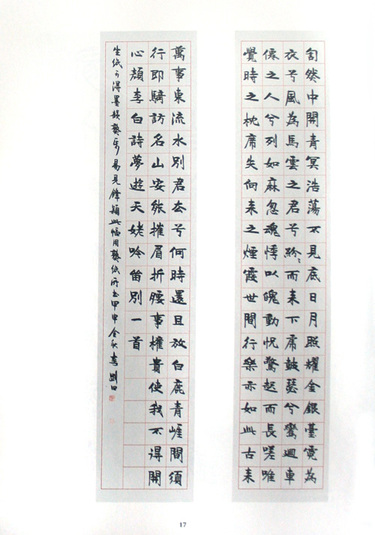 訇然中開青冥浩蕩不見底日月照耀金銀臺霓為
衣兮風為馬雲之君兮紛々而来下虎鼓瑟兮鸞迴車
僊之人兮列如麻忽魂悸以魄動怳驚起而長嗟唯
覺時之枕席失向来之煙霞世間行樂亦如此古来
萬事東流水別君去兮何時還且放白鹿青崖間須
行即騎訪名山安能摧眉折腰事權貴使我不得開
心顏李白詩夢遊天姥吟留別一首
生紙得墨易見鋒穎此幅用紙所書甲申金秋
17